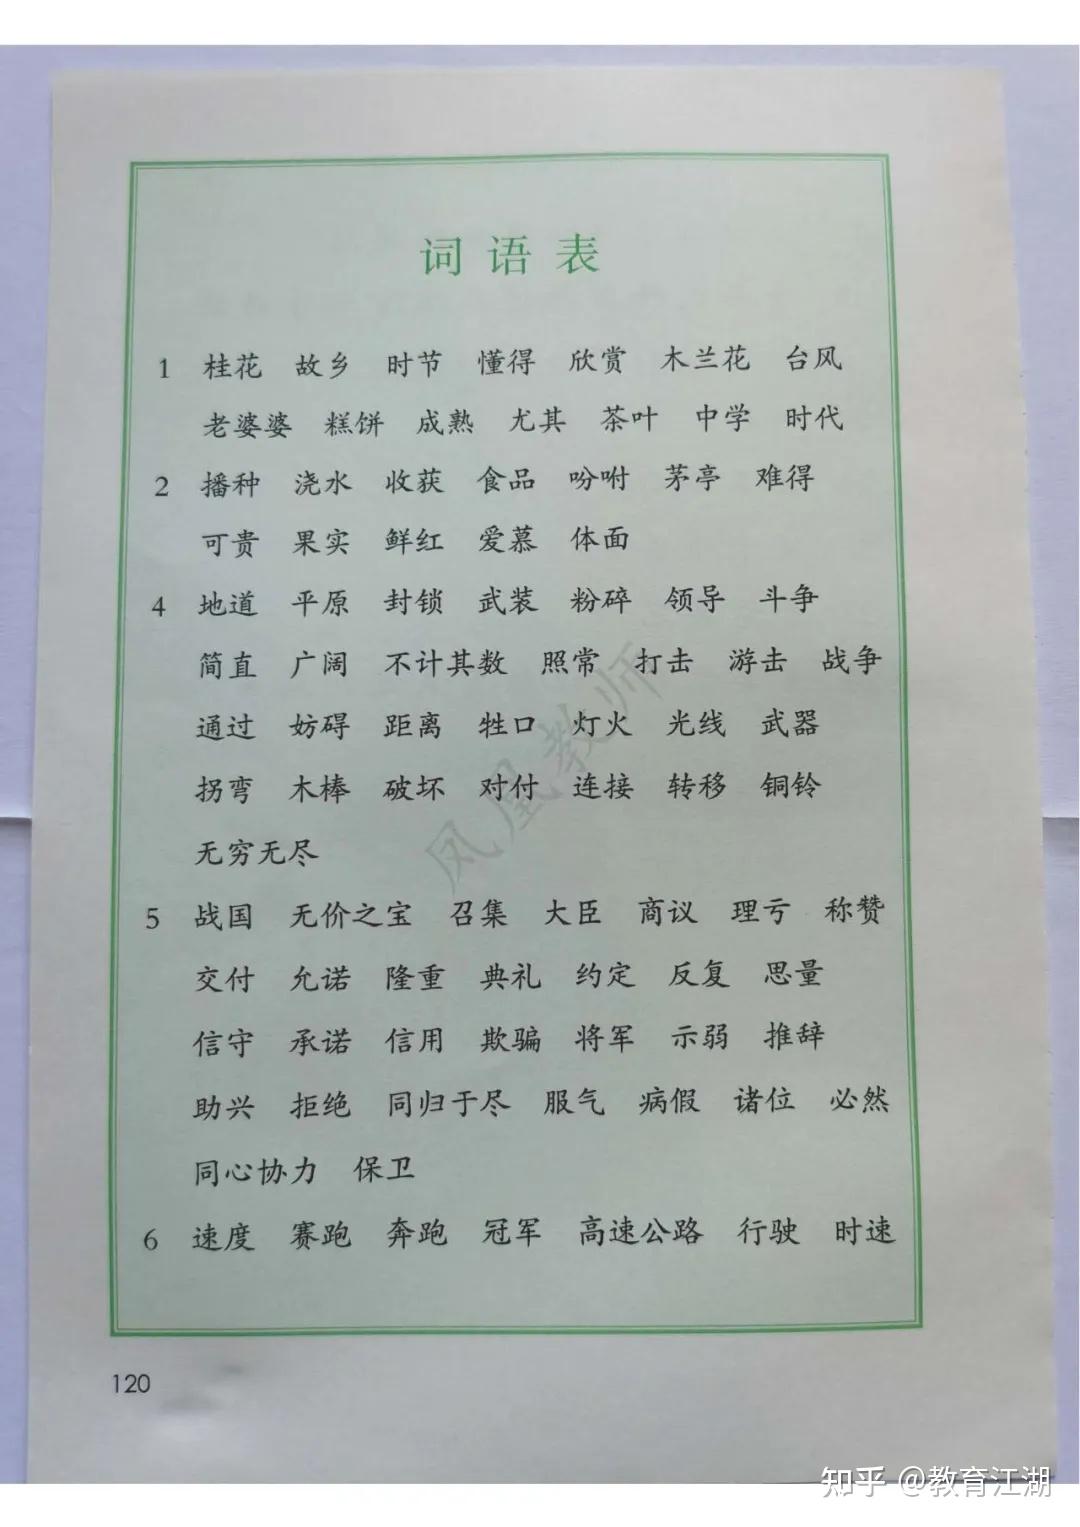 词语表
1 桂花 故乡 时节 懂得 欣赏 木兰花 台风
老婆婆 糕饼 成熟 尤其 茶叶 中学 时代
2 播种 浇水 收获 食品 吩咐 茅亭 难得
可贵 果实 鲜红 爱慕 体面
4 地道 平原 封锁 武装 粉碎 领导 斗争
简直 广阔 不计其数 照常 打击 游击 战争
通过 妨碍 距离 牲口 灯火 光线 武器
拐弯 木棒 破坏 对付 连接 转移 铜铃
无穷无尽
5 战国 无价之宝 召集 大臣 商议 理亏 称赞
交付 允诺 隆重 典礼 约定 反复 思量
信守 承诺 信用 欺骗 将军 示弱 推辞
助兴 拒绝 同归于尽 服气 病假 诸位 必然
同心协力 保卫
6 速度 赛跑 奔跑 冠军 高速公路 行驶 时速
120
凤凰教师
知乎 @教育江湖